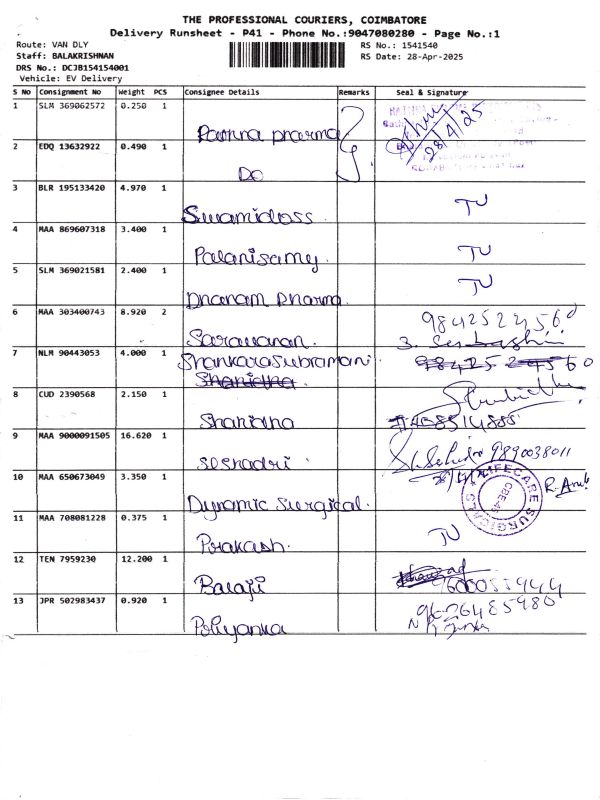 THE PROFESSIONAL COURIERS, COIMBATORE
Delivery Runsheet - P41 - Phone No.:9047080280 - Page No.:1
Route: VAN DLY RS No.: 1541540
Staff: BALAKRISHNAN RS Date: 28-Apr-2025
DRS No.: DCJB154154001
Vehicle: EV Delivery
S No Consignment No Weight PCS Consignee Details Remarks Seal & Signature
1 SLM 369062572 0.250 1
Pamna pharma 28/4/25
2 EDQ 13632922 0.490 1
Do
3 BLR 195133420 4.970 1
Swamidoss TU
4 MAA 869607318 3.400 1
Palanisamy TU
5 SLM 369021581 2.400 1
Dhanam Pharma TU
6 MAA 303400743 8.920 2
Saravanan 9842522456
7 NLM 90443053 4.000 1
Shankarasubramani
8 CUD 2390568 2.150 1
Shanidha
9 MAA 9000091505 16.620 1
Seshadri 9890038011
10 MAA 650673049 3.350 1
Dynamic Surgical LIFECARE SURGICALS
11 MAA 708081228 0.375 1
Prakash TU
12 TEN 7959230 12.200 1
Balaji
13 JPR 502983437 0.920 1
Poliyanka